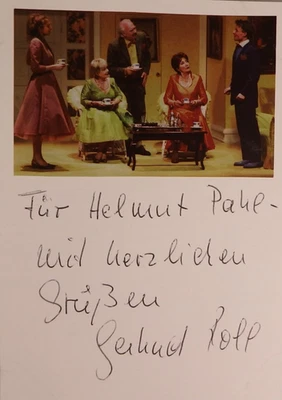 Für Helmut Pahl -
mit herzlichen
Grüßen
Gertrud Roll